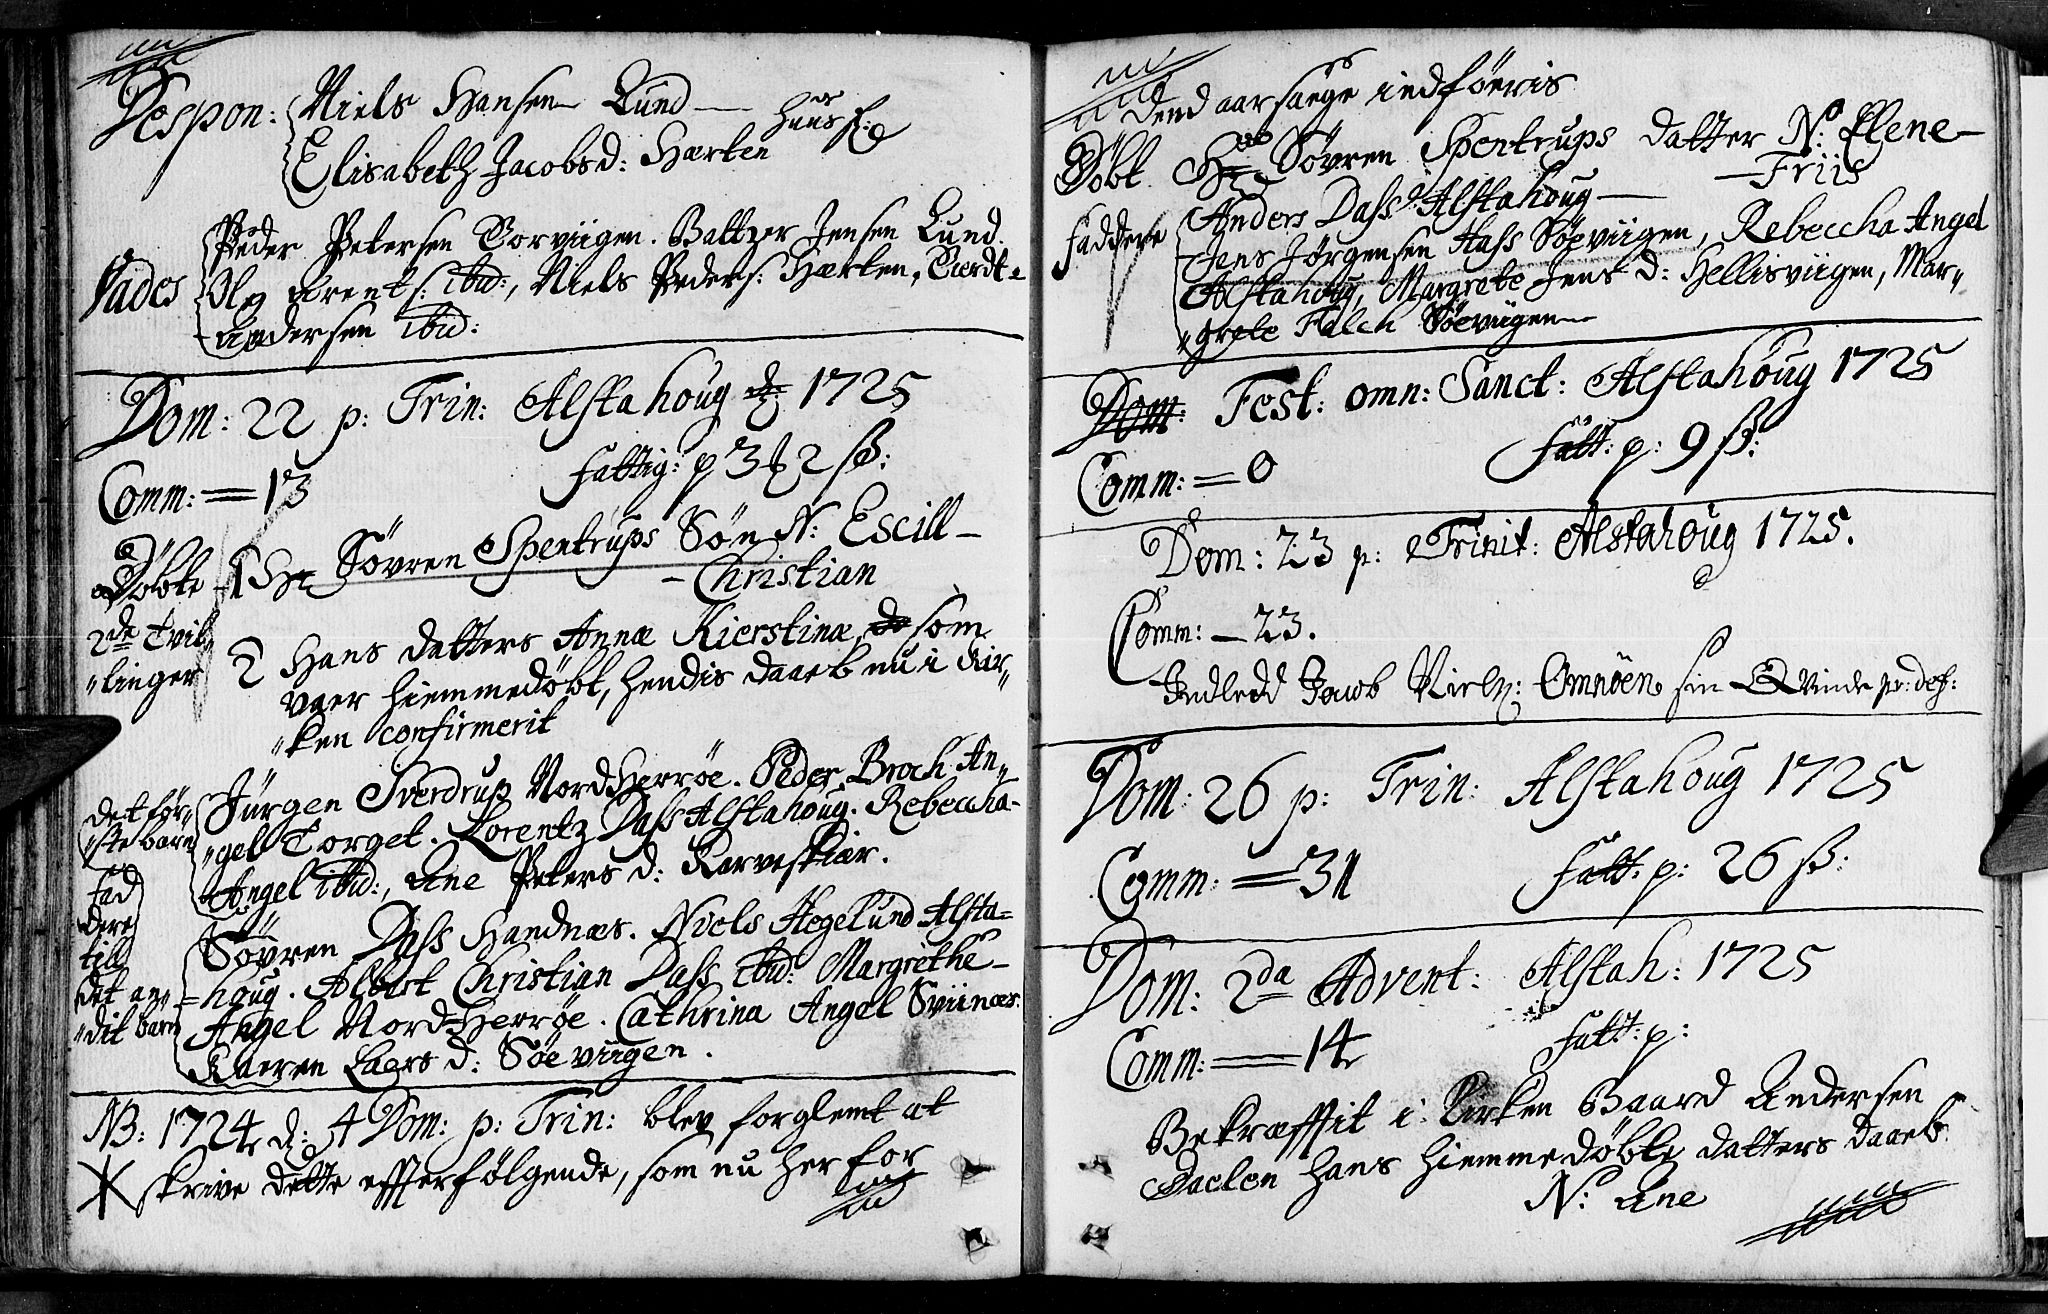 Despon: Niels Hansen Lund hans f:
Elisabeth Jacobsd: Hærten
Peder Petersen Torviigen. Baltzer Jensen Lund.
Vades Oleg Arents: ibid:, Niels Peders: Hærten, Tierdt
Andersen ibid:
Dom: 22 p: Trin: Alstahoug d: 1725
Comm: = 13 Fattig: p 3 2 ß:
Døbte 1 Hr Søvren Spentrups Søn N: Escill
Christian
2de Tvil
"linger 2 Hans datters Annæ Kierstinæ, de som
vaer hiemmedøbt, hendis daab nu i Kir"
"ken confirmerit
Jürgen Sverdrup Nord Herrøe. Peder Broch An"
det før"
"ste barn "gel Torget. Lorentz Dass Alstahoug. Rebeccha
Angel ibid:, Ane Peters d: Karveskiær.
Fad
dere
till
det an"
"dit barn
Søvren Dass Handnæs. Niels Hegelund Alsta=
=houg. Albert Christian Dass ibid: Margrethe
Angel Nord-Herrøe. Cathrina Angel Sviinæs.
Kaeren Laers d: Søeviigen.
NB: 1724 d: 4 Dom: p: Trin: blev forglemt at
skrive dette effterfølgende, som nu her for
dend aarsaege indføeris
Døbt Hr Søvren Spentrups datter N: Elene
Friis
Faddere Anders Dass Alstahoug
Jens Jørgensen Hass Søeviigen, Rebeccha Angel
Alstahoug, Margrete Jens d: Hellisviigen, Mar"
"grete Falch Søeviigen
Dom: Fest: omn: Sanct: Alstahoug 1725
Comm: = 0 Fatt: p: 9 ß:
Dom: 23 p: Trinit: Alstahoug 1725.
Comm: 23.
Indledd Jacob Niels: Omnøen sin Qvinde pr: def:
Dom: 26 p: Trin: Alstahoug 1725
Comm: = 31 Fatt: p: 26 ß:
Dom: 2da Advent: Alstah: 1725
Comm: = 14 Fatt: p:
Bekræffit i Kirken Baard Andersen
Daelen hans hiemmedøbte datters daaeb
N: Ane